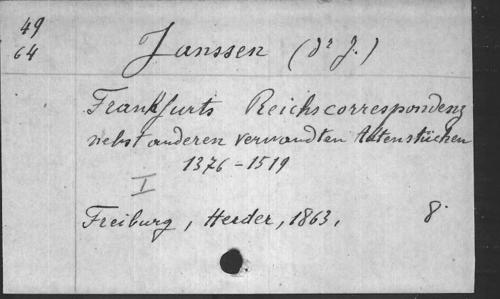 49
64
Janssen (Dr J.)
Frankfurts Reichscorrespondenz
nebst anderen verwandten Aktenstücken
1376-1519
I
Freiburg, Herder, 1863, 8.